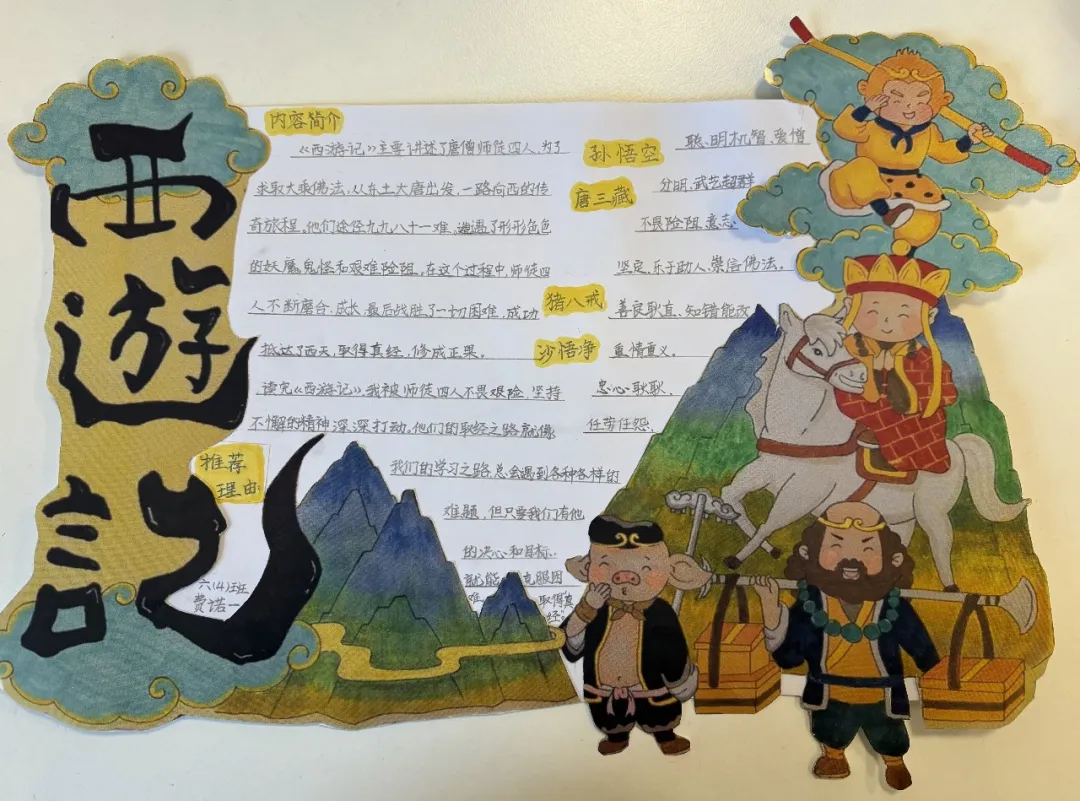 西遊记
内容简介
《西游记》主要讲述了唐僧师徒四人,为了
求取大乘佛法,从东土大唐出发,一路向西的传
奇旅程,他们途经九九八十一难,遭遇了形形色色
的妖魔鬼怪和艰难险阻。在这个过程中,师徒四
人不断磨合、成长,最后战胜了一切困难,成功
抵达了西天,取得真经,修成正果。
孙悟空
聪明机智、爱憎
分明,武艺超群
唐三藏
不畏险阻、意志
坚定、乐于助人、崇信佛法。
猪八戒
善良耿直、知错能改
重情重义。
沙悟净
忠心耿耿、
任劳任怨。
推荐
理由:
读完《西游记》,我被师徒四人不畏艰险、坚持
不懈的精神深深打动。他们的取经之路就像
我们的学习之路总会遇到各种各样的
难题,但只要我们有他
的决心和目标,
就能 克服困
难 取得真
经"
六(4)班
费诺一